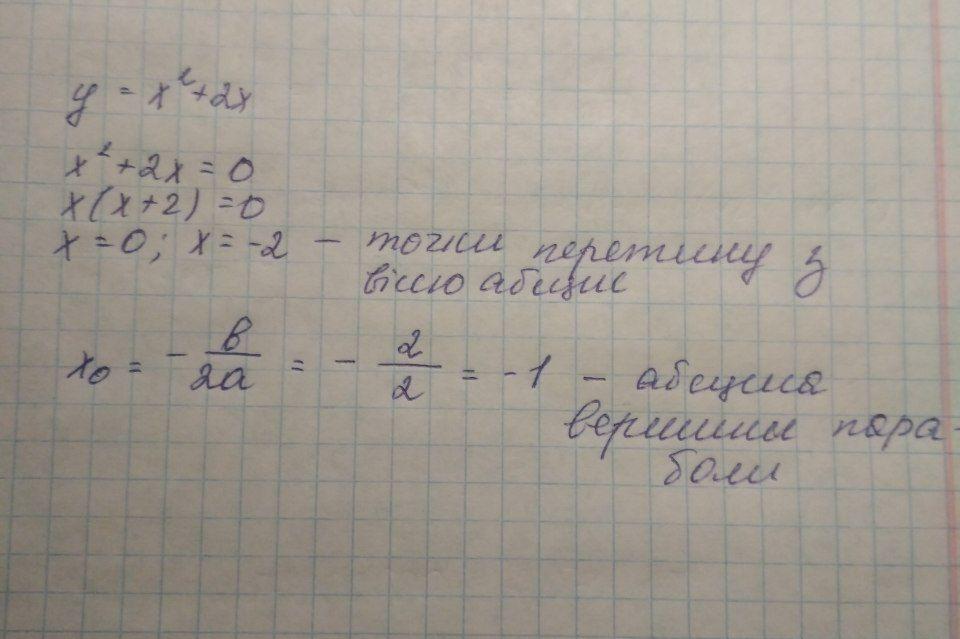 y = x² + 2x
x² + 2x = 0
x(x+2) = 0
x = 0; x = -2 – точки перетину з
вісю абцис
x₀ = - в/2a = - 2/2 = -1 – абциса
вершини пара-
боли